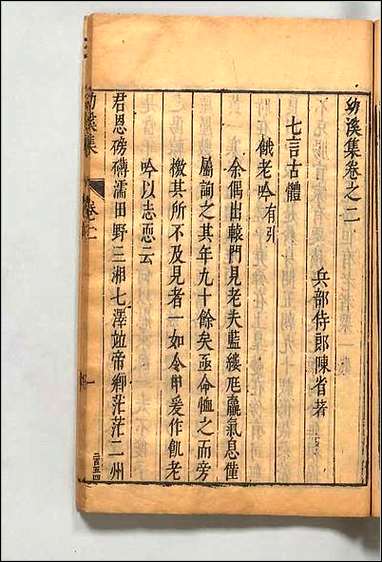 幼溪集卷之二
兵部侍郎陳省著
七言古體
餓老吟有引
余偶出轅門見老夫藍縷尫羸氣息僅
屬詢之其年九十餘矣亟命恤之而旁
檄其所不及見者一如令甲爰作飢老
吟以志恧云
君恩磅礴濡田野三湘七澤並帝鄉茫茫二州
幼溪集
卷二
一
二百五四